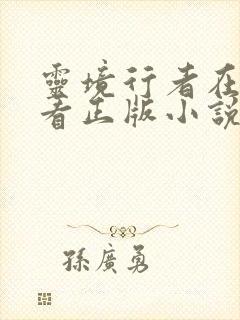 靈境行者在
者正版小說
孫廣勇